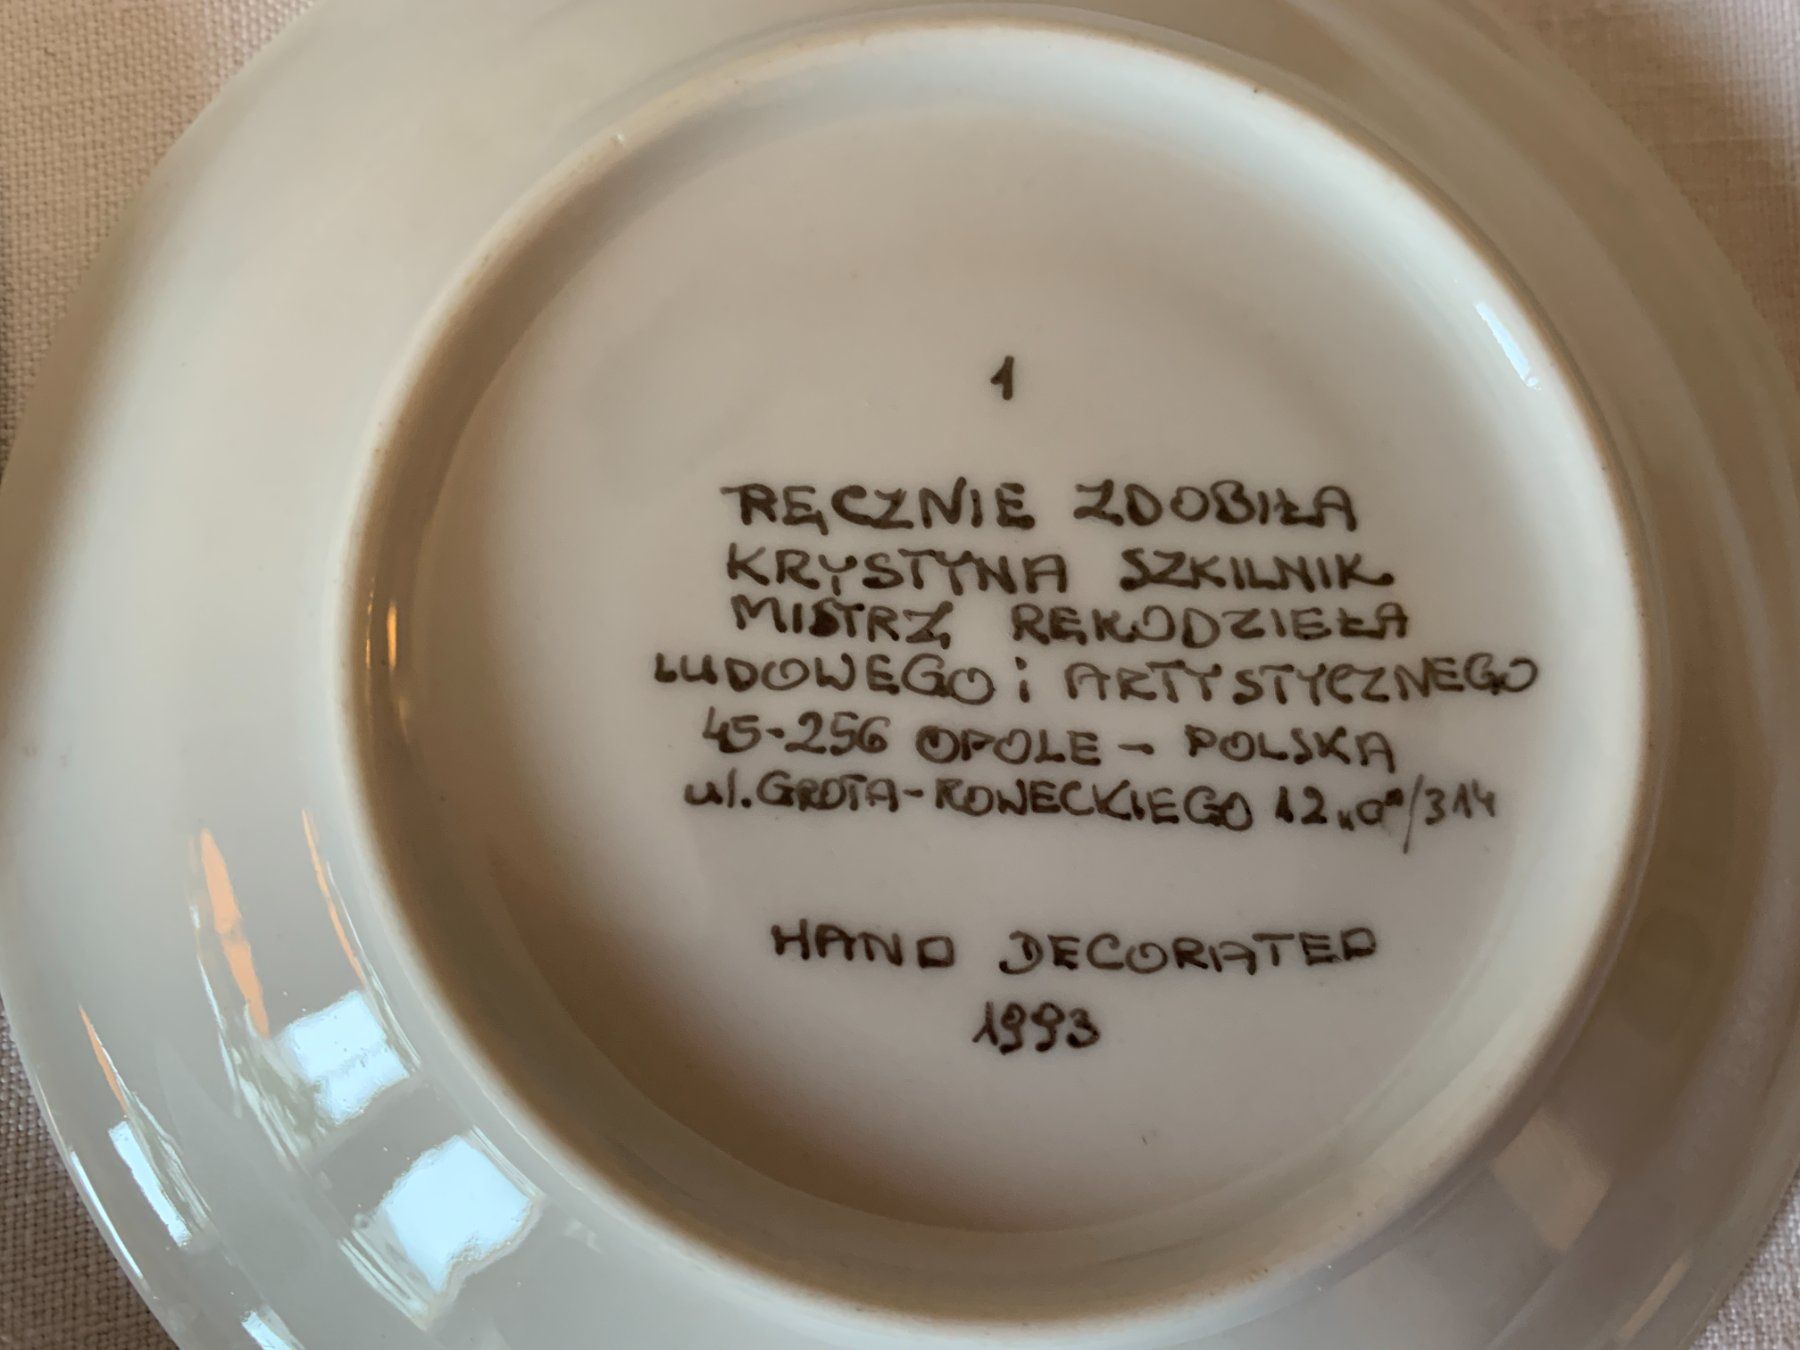 1
RĘCZNIE ZDOBIŁA
KRYSTYNA SZKILNIK
MISTRZ RĘKODZIEŁA
LUDOWEGO i ARTYSTYCZNEGO
45-256 OPOLE - POLSKA
ul. GROTA-ROWECKIEGO 12 „a"/314
HAND DECORATED
1993